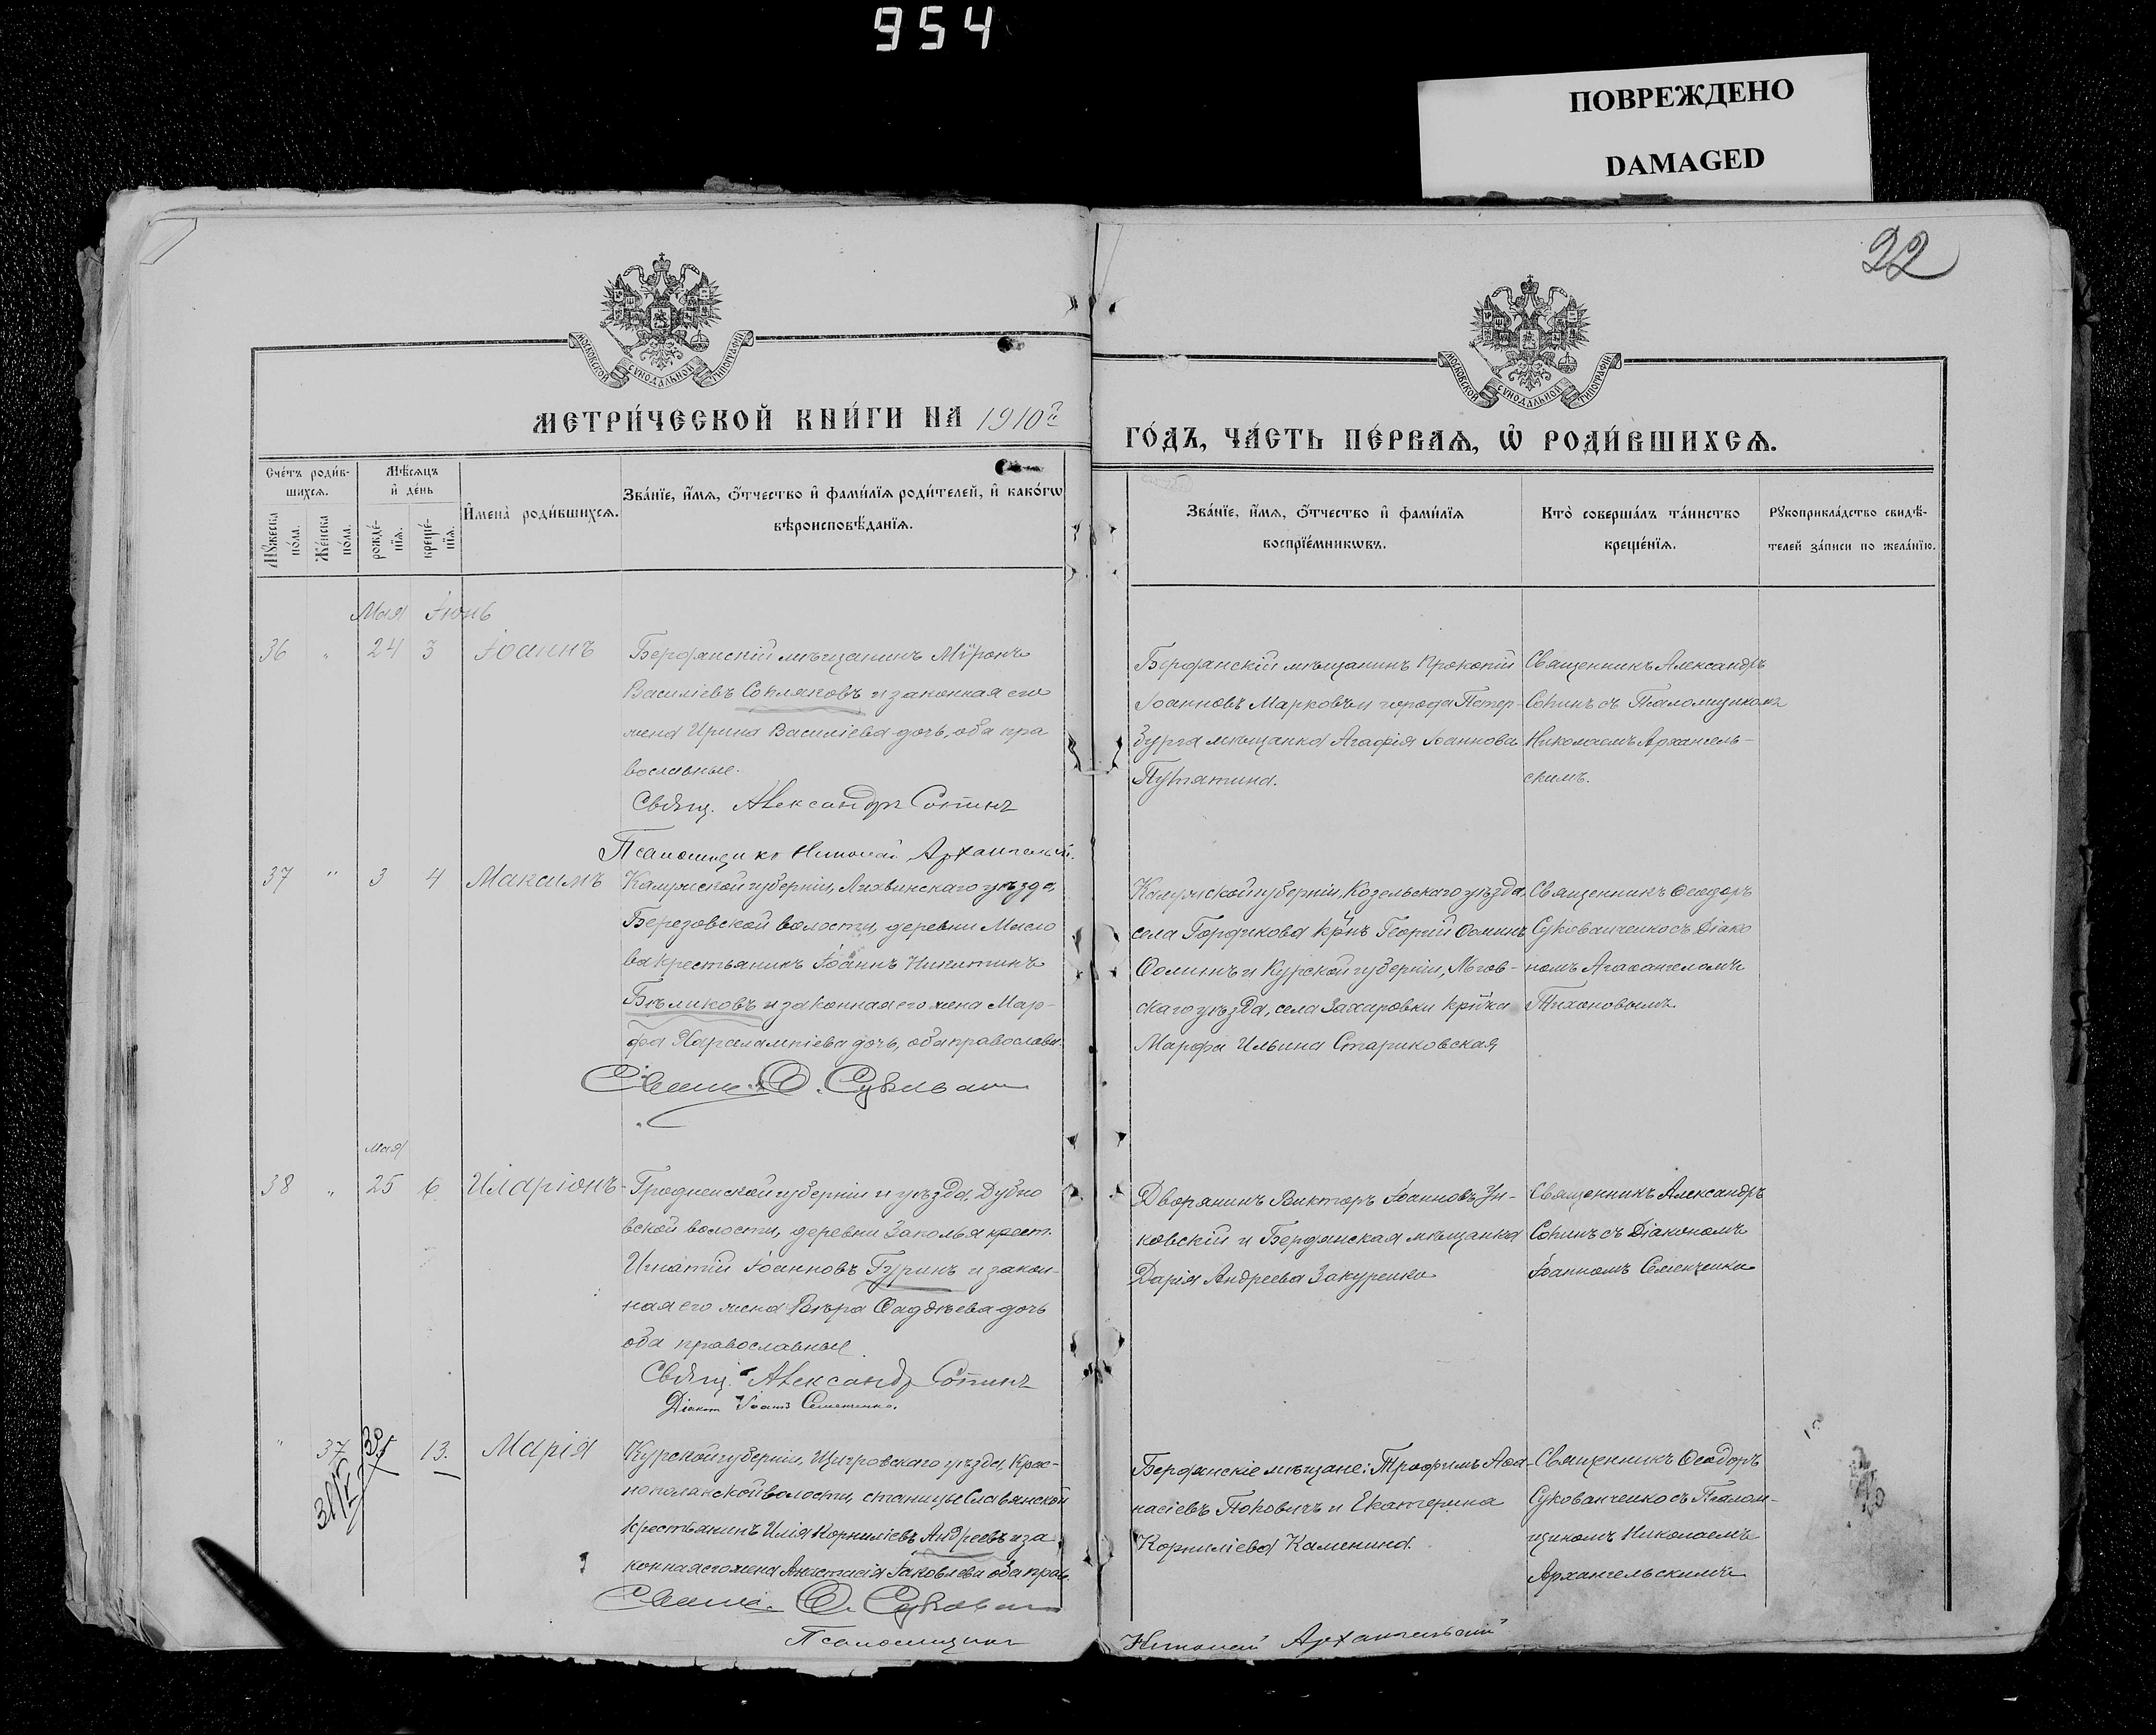 954
ПОВРЕЖДЕНО
DAMAGED
22
МОСКОВСКОЙ СѴНОДАЛЬНОЙ ТИПОГРАФІИ
МОСКОВСКОЙ СѴНОДАЛЬНОЙ ТИПОГРАФІИ
МЕТРИ́ЧЕСКОЙ КНИ́ГИ НА 1910й
ГО́ДЪ, ЧА́СТЬ ПЕ́РВАѦ, Ѡ҆ РОДИ́ВШИХСѦ.
Сче́тъ роди́в-
шихсѧ.
Мѣ́сѧцъ
и҆ де́нь
Мꙋ́жеска
по́ла.
Же́нска
по́ла.
рожде́-
нїѧ.
креще́-
нїѧ.
И҆мена̀ роди́вшихсѧ.
Зва́нїе, и҆́мѧ, ѻ҆́тчество и҆ фами́лїѧ роди́телей, и҆ како́гѡ
вѣроисповѣ́данїѧ.
Зва́нїе, и҆́мѧ, ѻ҆́тчество и҆ фами́лїѧ
воспрїе́мникѡвъ.
Кто̀ соверша́лъ та́инство
креще́нїѧ.
Рꙋкоприкла́дство свидѣ́-
телей за́писи по жела́нїю.
Мая Іюнь
36 " 24 3 Іоаннъ
Бердянскій мѣщанинъ Міронъ
Василіевъ Сопляковъ и законная его
жена Ирина Василіева дочь, оба пра
вославные.
Свящ. Александръ Сопинъ
Псаломщикъ Николай Архангельскій.
Бердянскій мѣщанинъ Прокопій
Іоанновъ Марковъ и города Петер-
бурга мѣщанка Агафія Іоаннова
Путятина.
Священникъ Александръ
Сопинъ съ Псаломщикомъ
Николаемъ Архангель-
скимъ.
37 " 3 4 Максимъ
Калужской губерніи, Лихвинскаго уѣзда,
Березовской волости, деревни Масло
ва крестьянинъ Іоаннъ Никитинъ
Бѣликовъ и законная его жена Мар-
фа Харалампіева дочь, оба православн.
Свящ. Ѳ. Сукован
Калужской губерніи, Козельскаго уѣзда,
села Гордикова кр̃нъ Георгій Ѳоминъ
Ѳоминъ и Курской губерніи, Льгов-
скаго уѣзда, села Захаровки кр̃нка
Марфа Ильина Стариковская
Священникъ Ѳеодоръ
Суковаченко съ Діако
номъ Агаѳангеломъ
Тихоновымъ.
мая
38 " 25 6 Иларіонъ
Гродненской губерніи и уѣзда, Дубно
вской волости, деревни Заколья крест.
Игнатій Іоанновъ Гуринъ и закон-
ная его жена Вѣра Ѳаддѣева дочь
оба православные.
Свящ. Александръ Сопинъ
Діаконъ Іоаннъ Семенченко.
Дворянинъ Викторъ Іоанновъ
ковскій и Бердянская мѣщанка
Дарія Андреева Закуренко
Священникъ Александръ
Сопинъ съ Діакономъ
Іоанномъ Семенченко
" 37 13. Марія
Курской губерніи, Щигровскаго уѣзда, Крас-
нополянской волости, станицы Славянской
крестьянинъ Илія Корниліевъ Андреевъ и за
конная его жена Анастасія Іаковлева оба прав.
Свящ. Ѳ. Сукован
Псаломщикъ Николай Архангельскій
Бердянскіе мѣщане: Трофимъ Аѳа-
насіевъ Поповичъ и Екатерина
Корниліева Каменина.
Священникъ Ѳеодоръ
Суковаченко съ Псалом-
щикомъ Николаемъ
Архангельскимъ